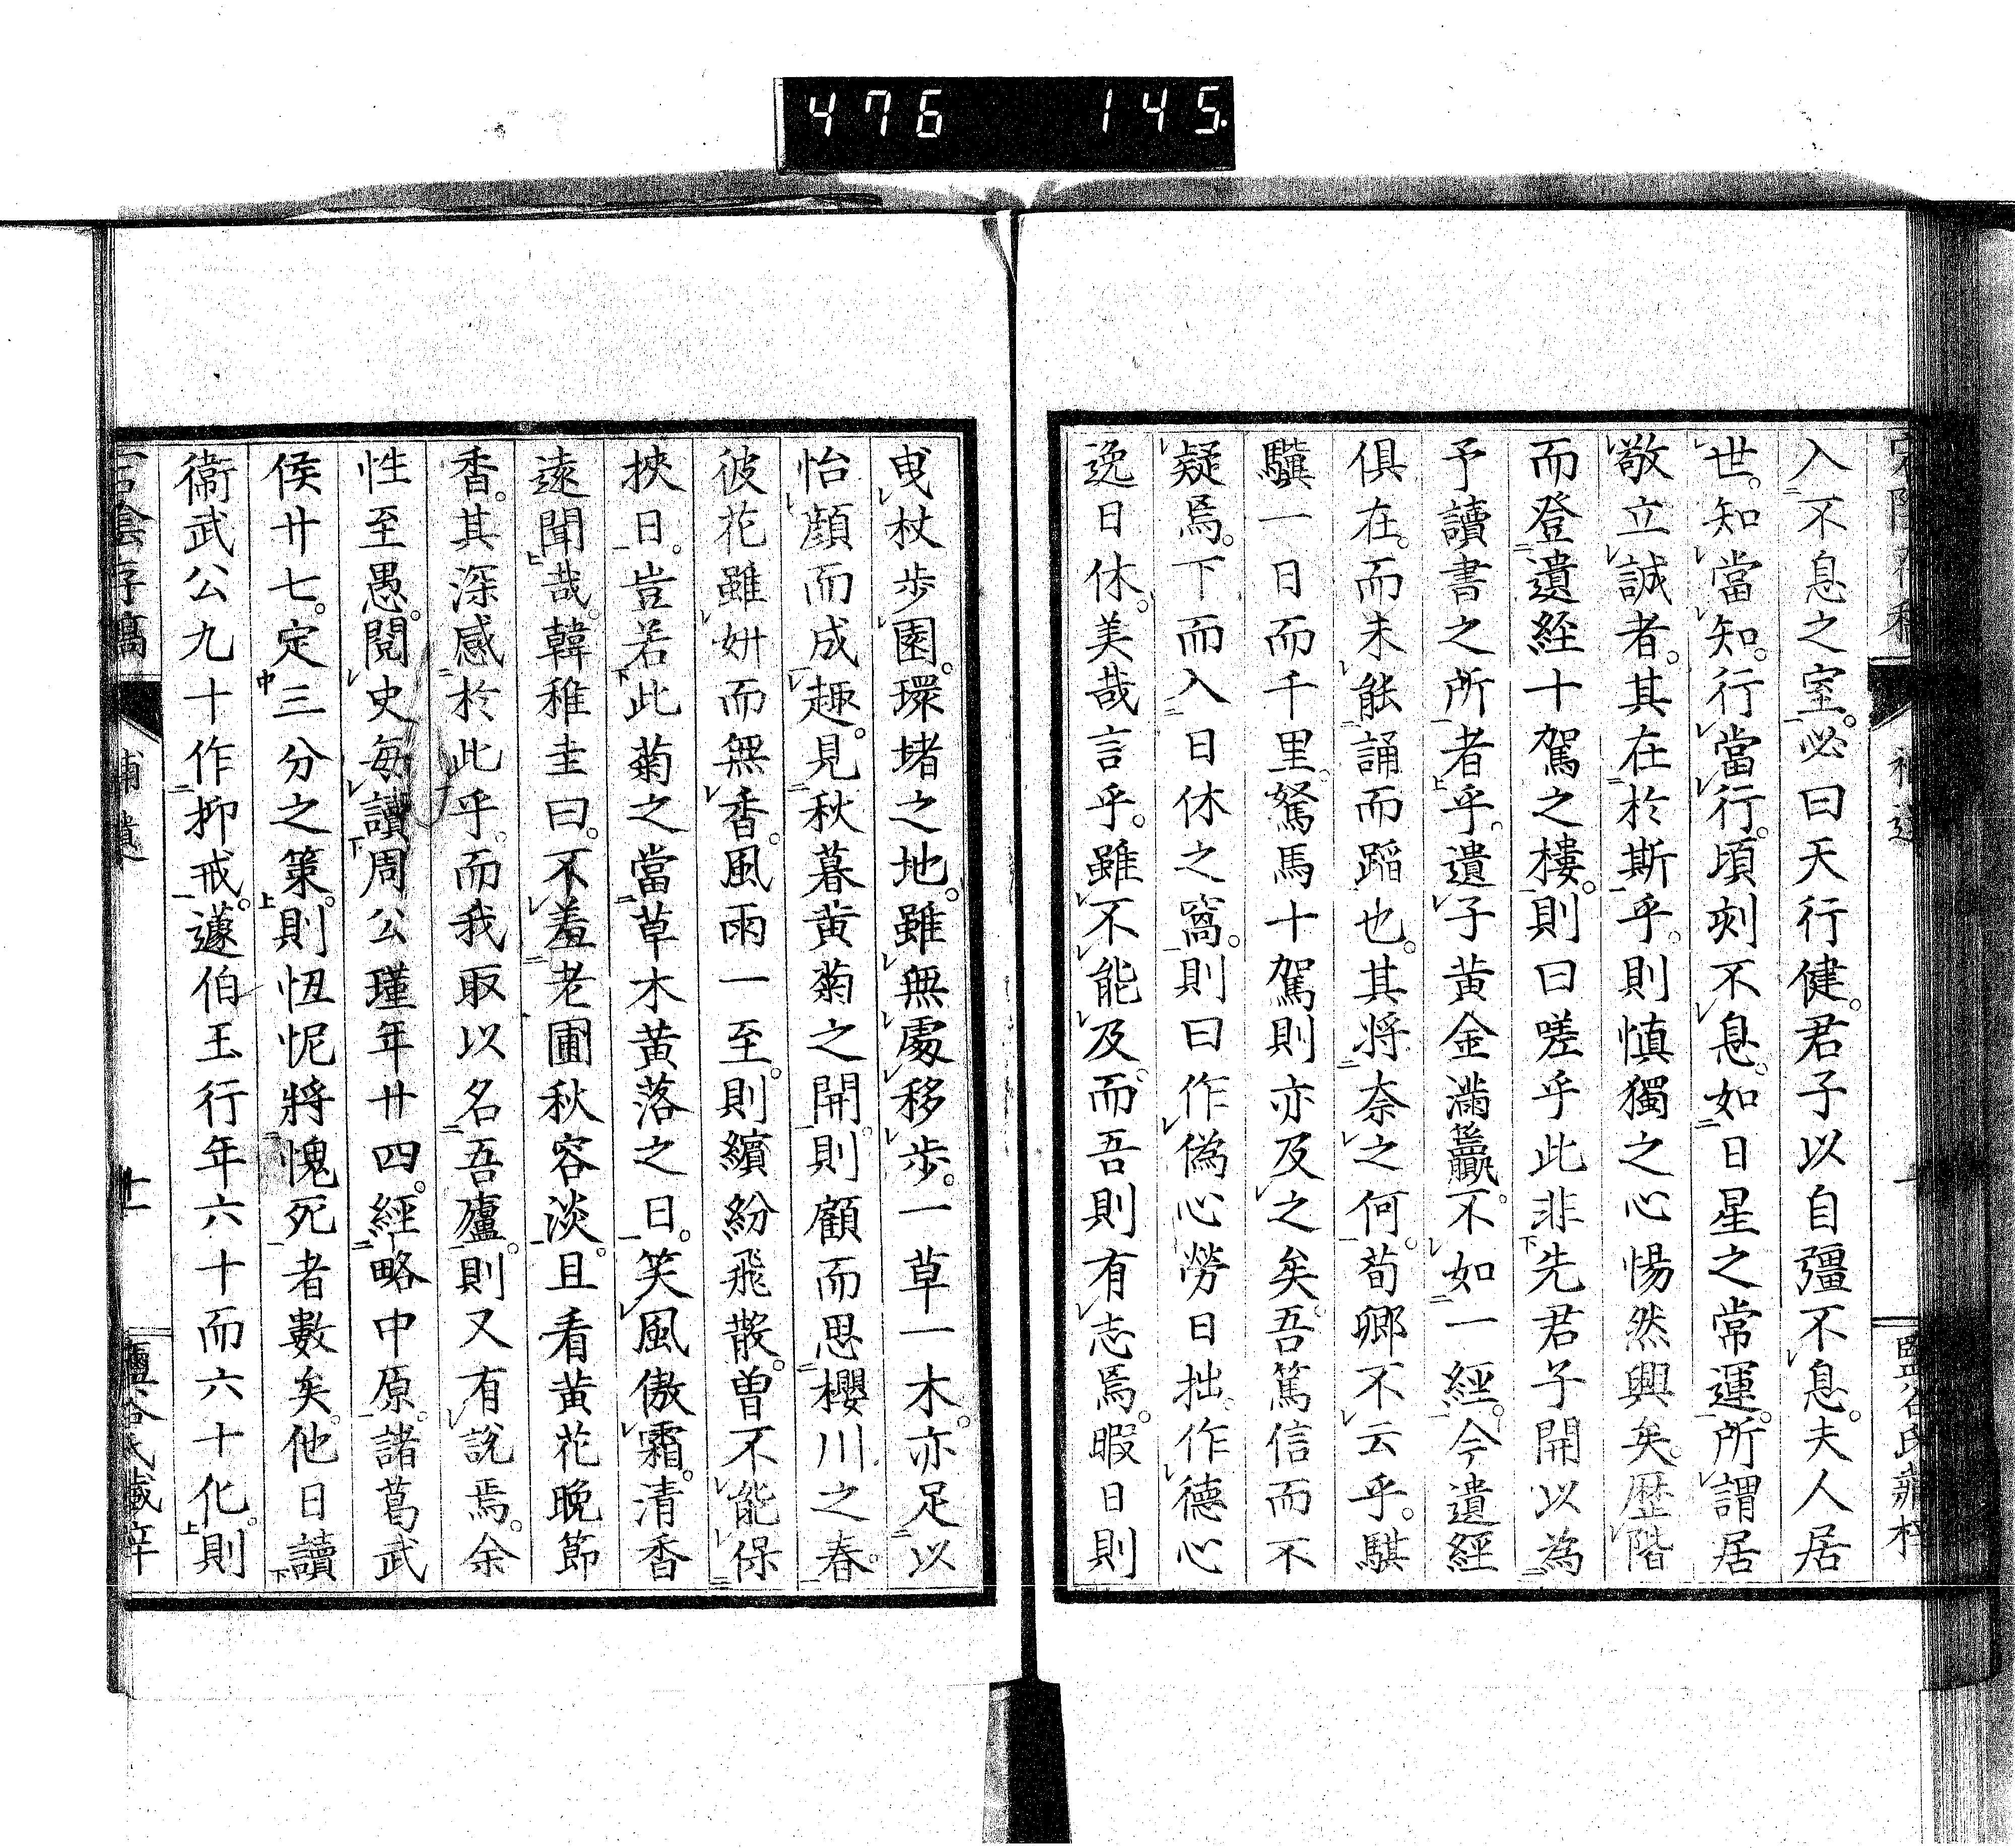 476 145.
入不息之室。必曰天行健。君子以自彊不息。夫人居
世。知當知。行當行。頃刻不息。如日星之常運。所謂居
敬立誠者。其在於斯乎。則慎獨之心惕然興矣。歴階
而登遺経十駕之樓。則曰嗟乎此非先君子開以為
予讀書之所者乎。遺子黄金滿籝。不如一經。今遺經
俱在。而未能誦而蹈也。其將奈之何。荀卿不云乎。騏
驥一日而千里。駑馬十駕則亦及之矣。吾篤信而不
疑焉。下而入日休之窩。則曰作偽心勞日拙。作德心
逸日休。美哉言乎。雖不能及。而吾則有志焉。暇日則
曳杖歩園。環堵之地。雖無處移歩。一草一木。亦足以
怡顔而成趣。見秋暮黄菊之開。則顧而思櫻川之春。
彼花雖妍而無香。風雨一至。則繽紛飛散。曽不能保
挾日。豈若此菊之當草木黄落之日。笑風傲霜。清香
遠聞哉。韓稚圭曰。不羞老圃秋容淡。且看黄花晩節
香。其深感於此乎。而我取以名吾廬。則又有説焉。余
性至愚。閲史毎讀周公瑾年廿四。經略中原。諸葛武
侯廿七。定三分之策。則忸怩將愧死者數矣。他日讀
衞武公九十作抑戒。蘧伯玉行年六十而六十化。則
補遺
十一